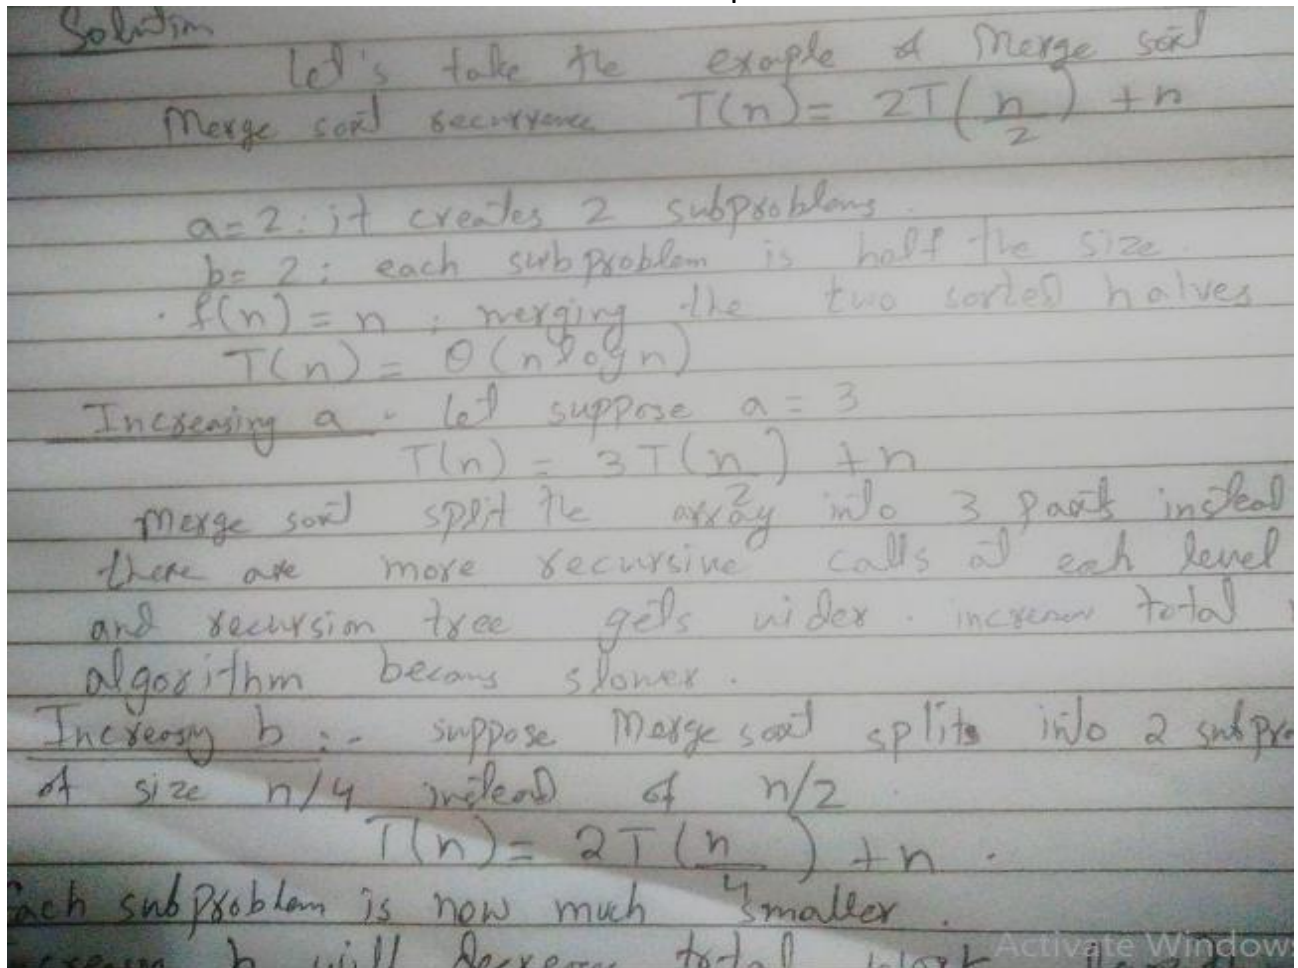 Solution
Let's take the example of Merge sort
Merge sort recurrence T(n) = 2T(n/2) + n
a=2: it creates 2 subproblems.
b=2: each subproblem is half the size.
f(n) = n : merging the two sorted halves
T(n) = θ(n log n)
Increasing a - Let suppose a = 3
T(n) = 3T(n/2) + n
Merge sort split the array into 3 parts instead
there are more recursive calls at each level
and recursion tree gets wider. total
algorithm becoms slower.
Increasing b :- suppose Merge sort splits into 2 subpro
of size n/4 instead of n/2.
T(n) = 2T(n/4) + n.
Each subproblem is now much smaller.
b will total work
Activate Windows